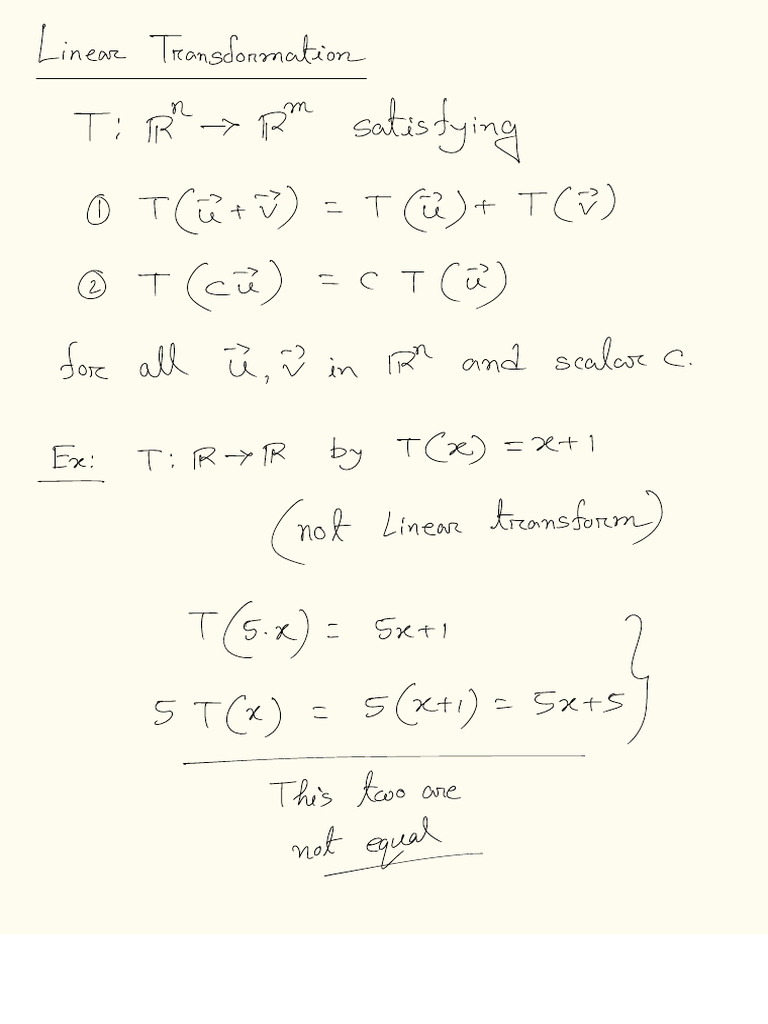 Linear Transformation
T: ℝⁿ → ℝᵐ satisfying
① T(u⃗ + v⃗) = T(u⃗) + T(v⃗)
② T(cu⃗) = c T(u⃗)
for all u⃗, v⃗ in ℝⁿ and scalar c.
Ex: T: ℝ → ℝ by T(x) = x+1
(not Linear transform)
T(5·x) = 5x+1
5 T(x) = 5(x+1) = 5x+5 }
This two are
not equal